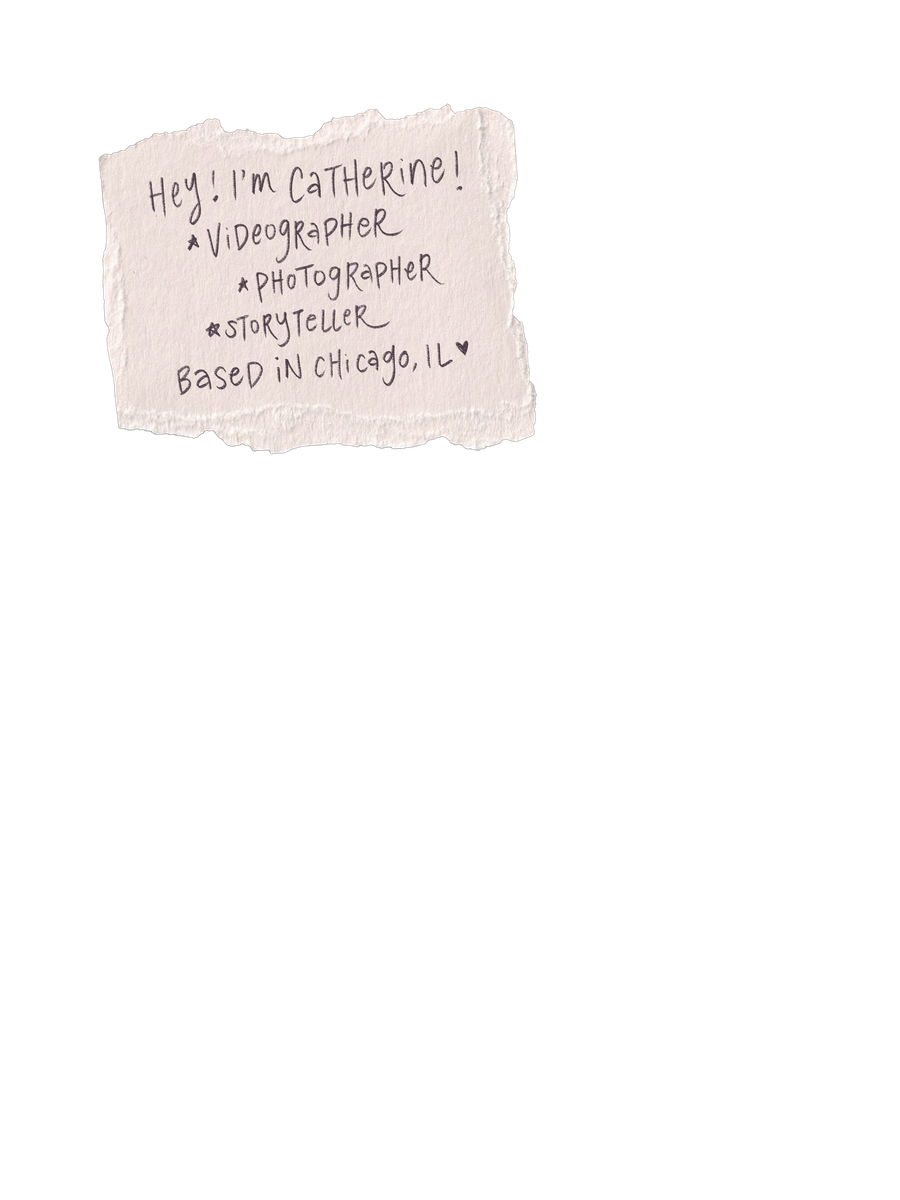 Hey! I'm CaTHeRine!
★ ViDeogRaPHeR
★ PHoTogRaPHeR
★ SToRyTeLLeR
BaseD iN CHicago, IL ♥